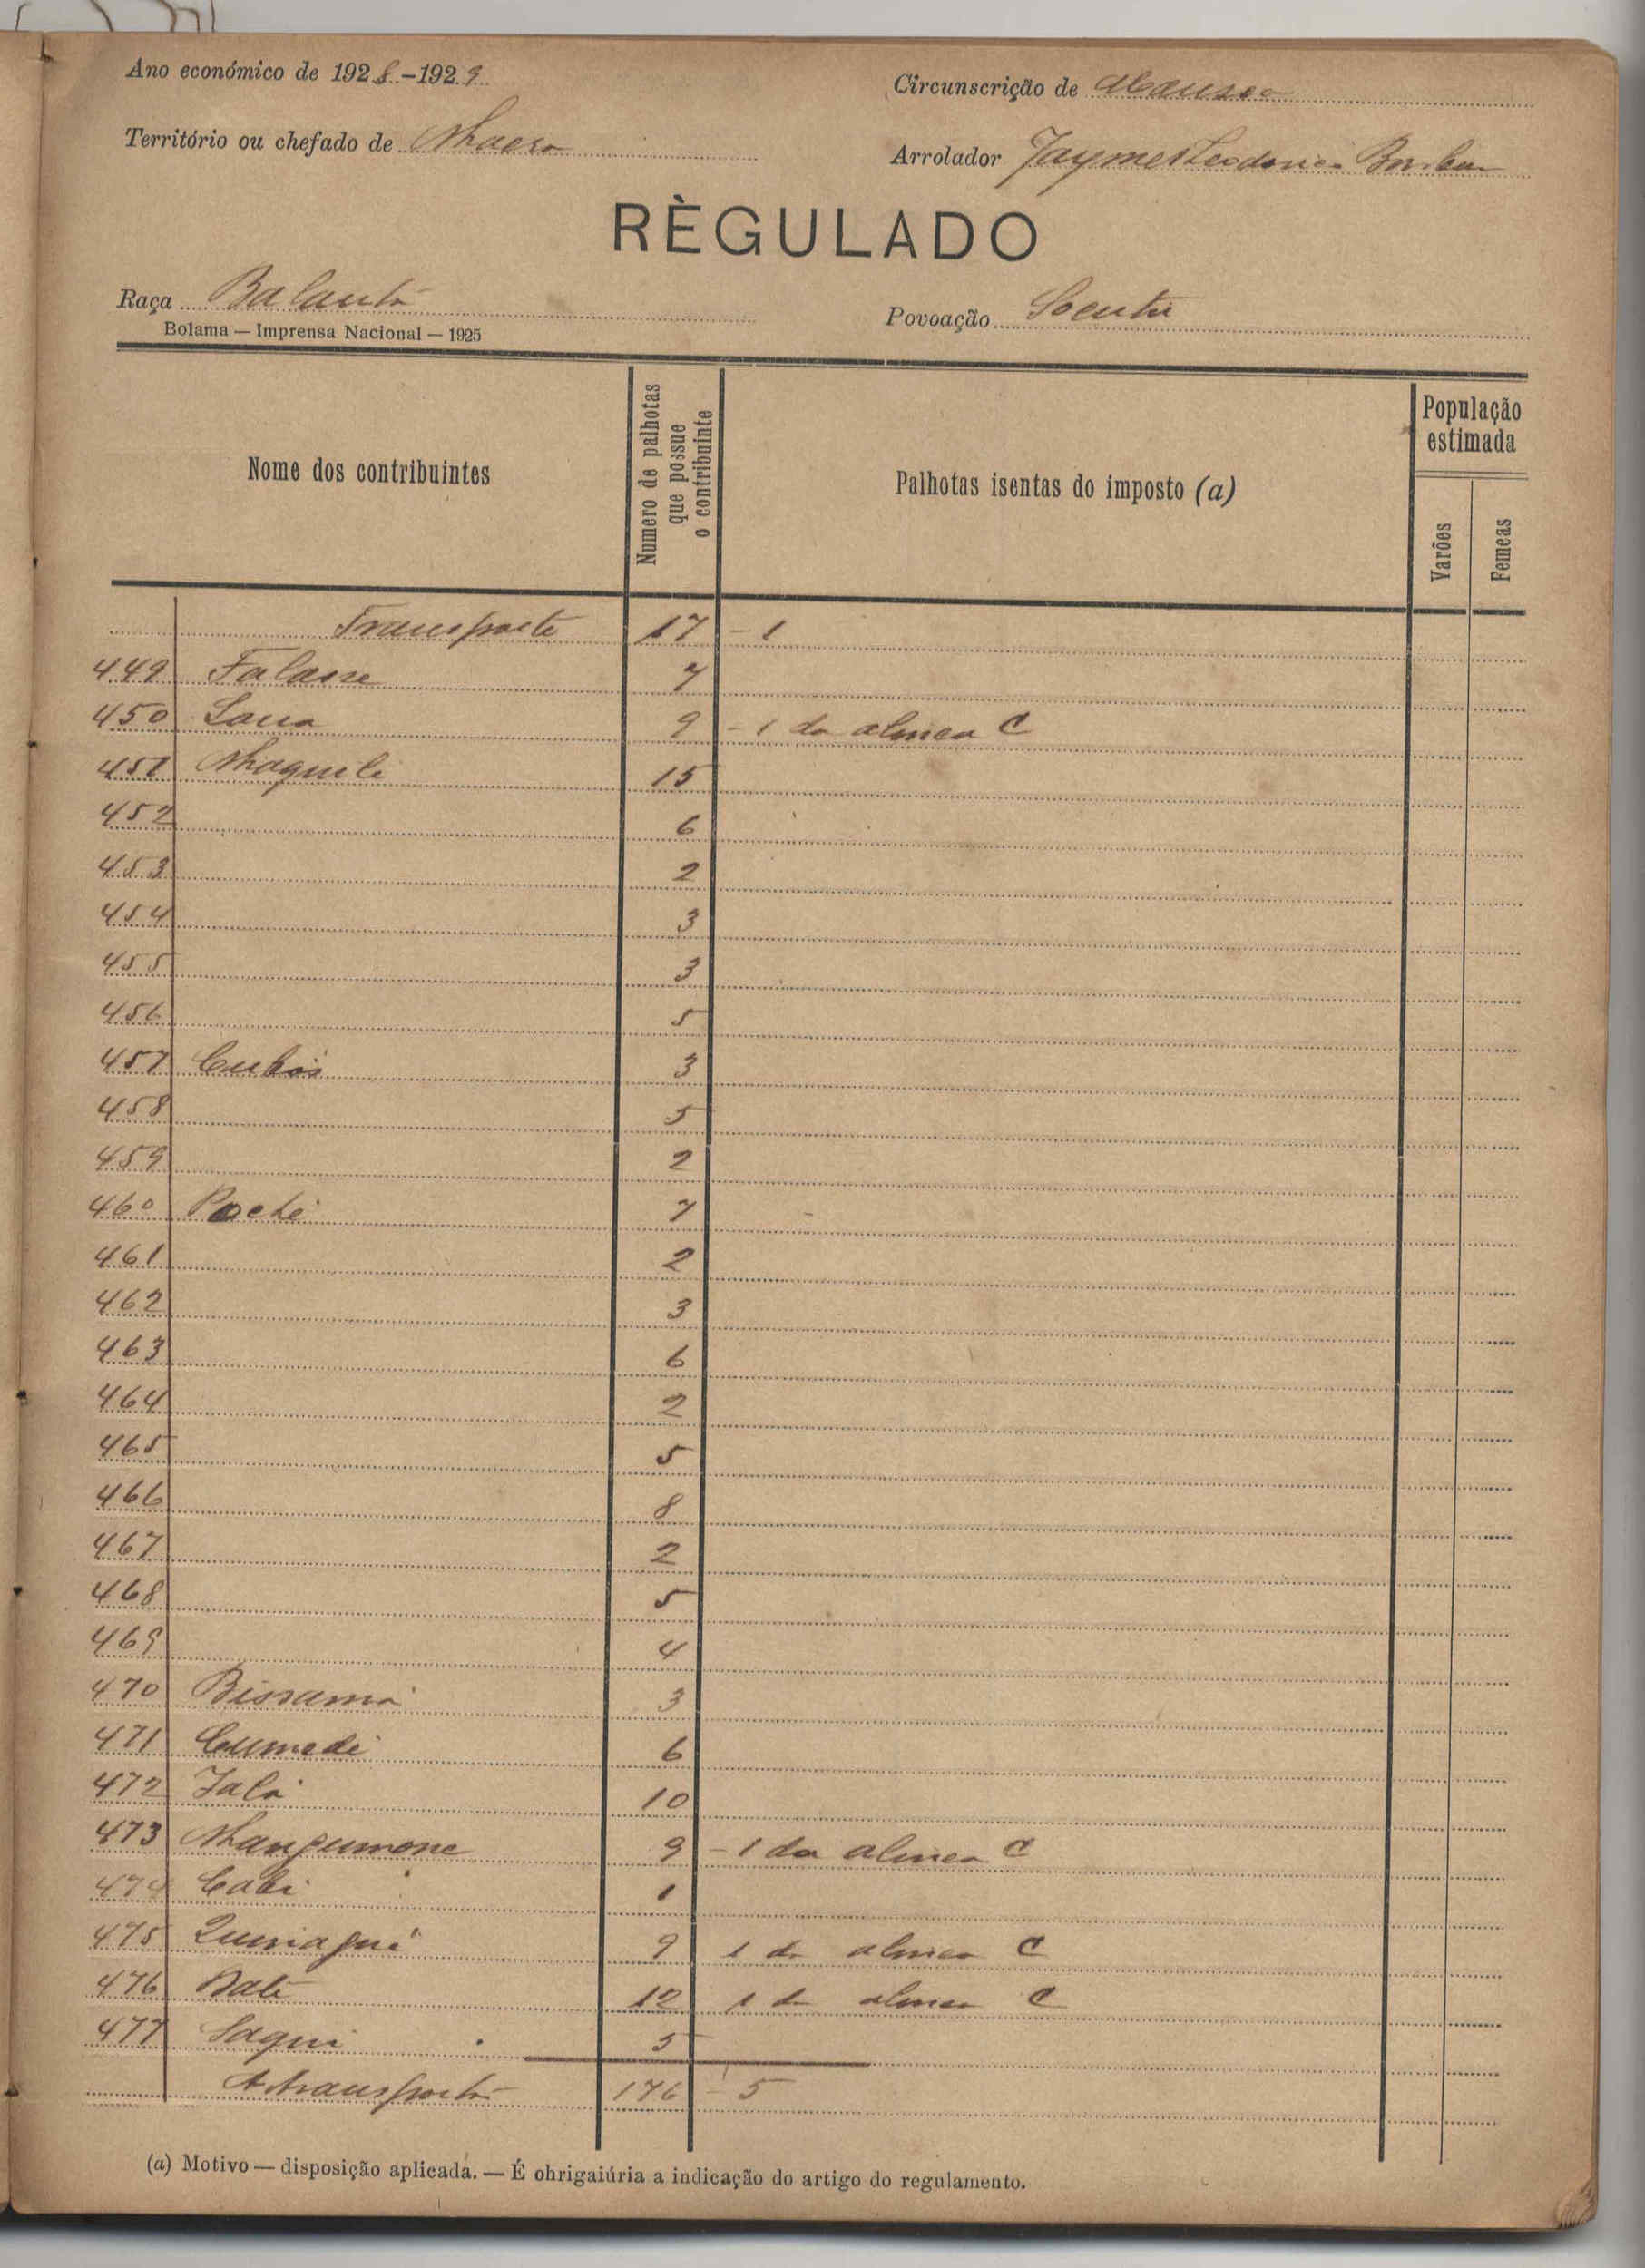 Ano económico de 1928-1929
Circunscrição de Mansoa
Território ou chefado de Nhacra
Arrolador Jayme
RÈGULADO
Raça Balanta
Povoação
Bolama — Imprensa Nacional — 1925
Nome dos contribuintes
Numero de palhotas que possue o contribuinte
Palhotas isentas do imposto (a)
População estimada
Varões
Femeas
Transporte 17 - 1
449 Falasse 7
450 9 - 1 da alinea C
451 Nhaquili 15
452 6
453 2
454 3
455 3
456 5
457 3
458 5
459 2
460 7
461 2
462 3
463 6
464 2
465 5
466 8
467 2
468 5
469 4
470 Bissamá 3
471 Cumedi 6
472 10
473 9 - 1 da alinea C
474 1
475 9 1 da alinea C
476 12 1 da alinea C
477 Saqui 5
A transportar 176 - 5
(a) Motivo — disposição aplicada. — É ohrigaiúria a indicação do artigo do regulamento.